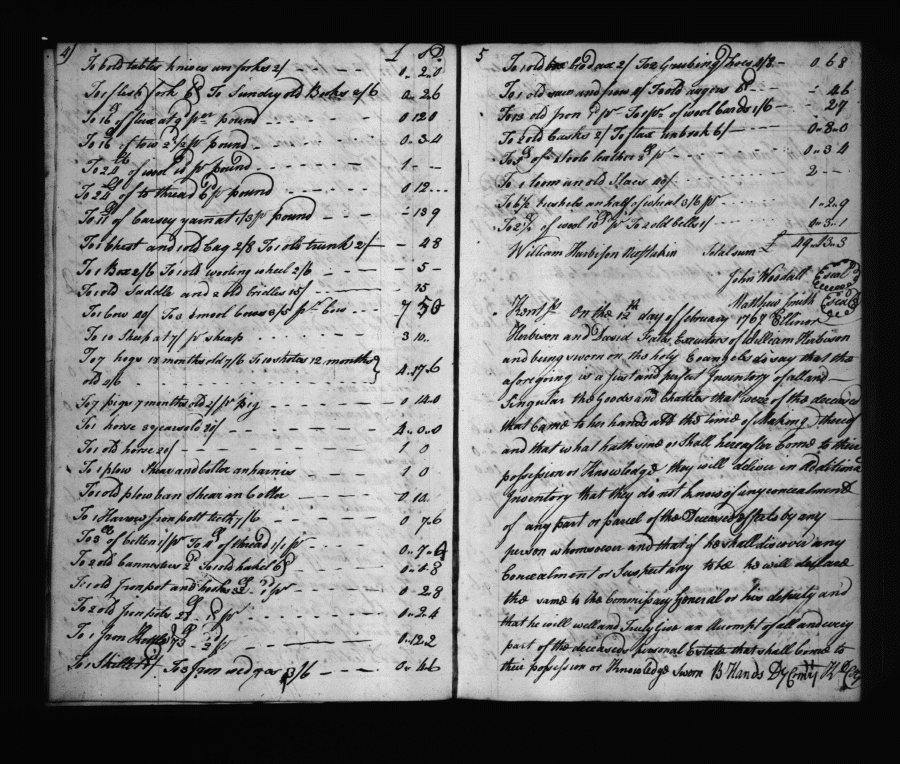 4
£ S D
To 6 old tables knives an forks 2/ 0 .. 2 .. 0
To 1 flesh fork 6d To Sundry old Books 2/6 0 .. 2 .. 6
To 16 lb of flax at 9d pr pound 0 12 0
To 16 lb of tow 2d ½ pr pound 0 .. 3 .. 4
To 24 lb of wool pr pound 1
To 24 lb of to thread 6d pr pound 0 12
To 11 lb of Carsey yarn at 1/3 pr pound 13 9
To 1 Chest and 1 old Bag 2/8 To 1 old trunk 2/ 4 8
To 1 Box 2/6 To 1 old wooling wheel 2/6 5
To 1 old Saddle and 2 old bridles 15/ 15
To 1 Cow 40/ To 3 Cows pr Cow 7 5 0
To 10 Sheep at 7/ pr sheep 3 10
To 7 hogs 18 months old 7/6 To 10 shotes 12 months
old 4/6 4 .. 17 .. 6
To 7 pigs 7 months old 2/ pr pig 0 14 .. 0
To 1 horse 3 years old 4 .. 0 .. 0
To 1 old horse 20/ 1 0
To 1 plow Shear and Colter an harnis 1 0
To 1 old plow an Shear an Colter 0 10
To 1 Harrow Iron bolt teeth 7/6 0 7 .. 6
To 3 lb of 1/ pr To 4 lb of thread 1/1 pr 0 .. 7 .. 4
To 2 old Cannesters 2d To 1 old hackel 6d 0 .. 0 .. 8
To 1 old Iron pot and hooks 32 lb 1d pr 0 2 8
To 2 old Iron pots 1d pr 0 .. 2 .. 4
To 1 Iron 73 lb 2d pr 0 .. 12 .. 2
To 1 Skillet To 3 Iron wedges 3/6 0 .. 4 .. 6
5
To 1 old broad ax 2/ To 2 Grubing hoes 4/8 0 6 8
To 1 old saw and iron of To old 8d 4 6
To 13 old Iron pr To 1 pr of wool Cards 1/6 2 7
To 2 old Casks 2/ To flax unbrook 6/ 0 .. 8 .. 0
To 5 lb of Soole leather 8d pr 0 .. 3 4
To 1 loom an old Slaes 40/ 2
To 6½ bushels an half of wheat 3/6 pr 1 .. 2 .. 9
To 2½ lb of wool 10d pr To 2 old Bells 1/ 0 .. 3 .. 1
William Harbison Total sum £ 49 .. 13 .. 3
John Woodall seal
Matthew Smith seal
Kent ss On the 12th day of february 1767 Ellinor
Herbison and David Falls Executors of William Herbison
and being sworn on the holy Evangels do say that the
aforegoing is a just and perfect Inventory of all and
Singular the Goods and Chattles that were of the deceased
that Came to her hands att the time of Making thereof
and that what hath since or Shall hereafter Come to their
possession or Knowledge they will deliver in Additional
Inventory that they do not know of any concealment
of any part or parcel of the Deceaseds Estate by any
person whomsoever and that if he shall discover any
Concealment or Suspect any to be he will declare
the same to the Commissary General or his deputy and
that he will well and Truly Give an Accompt of all and every
part of the deceaseds personal Estate that shall Come to
their possession or Knowledge Sworn B Hands Dy Comy Kt Coty